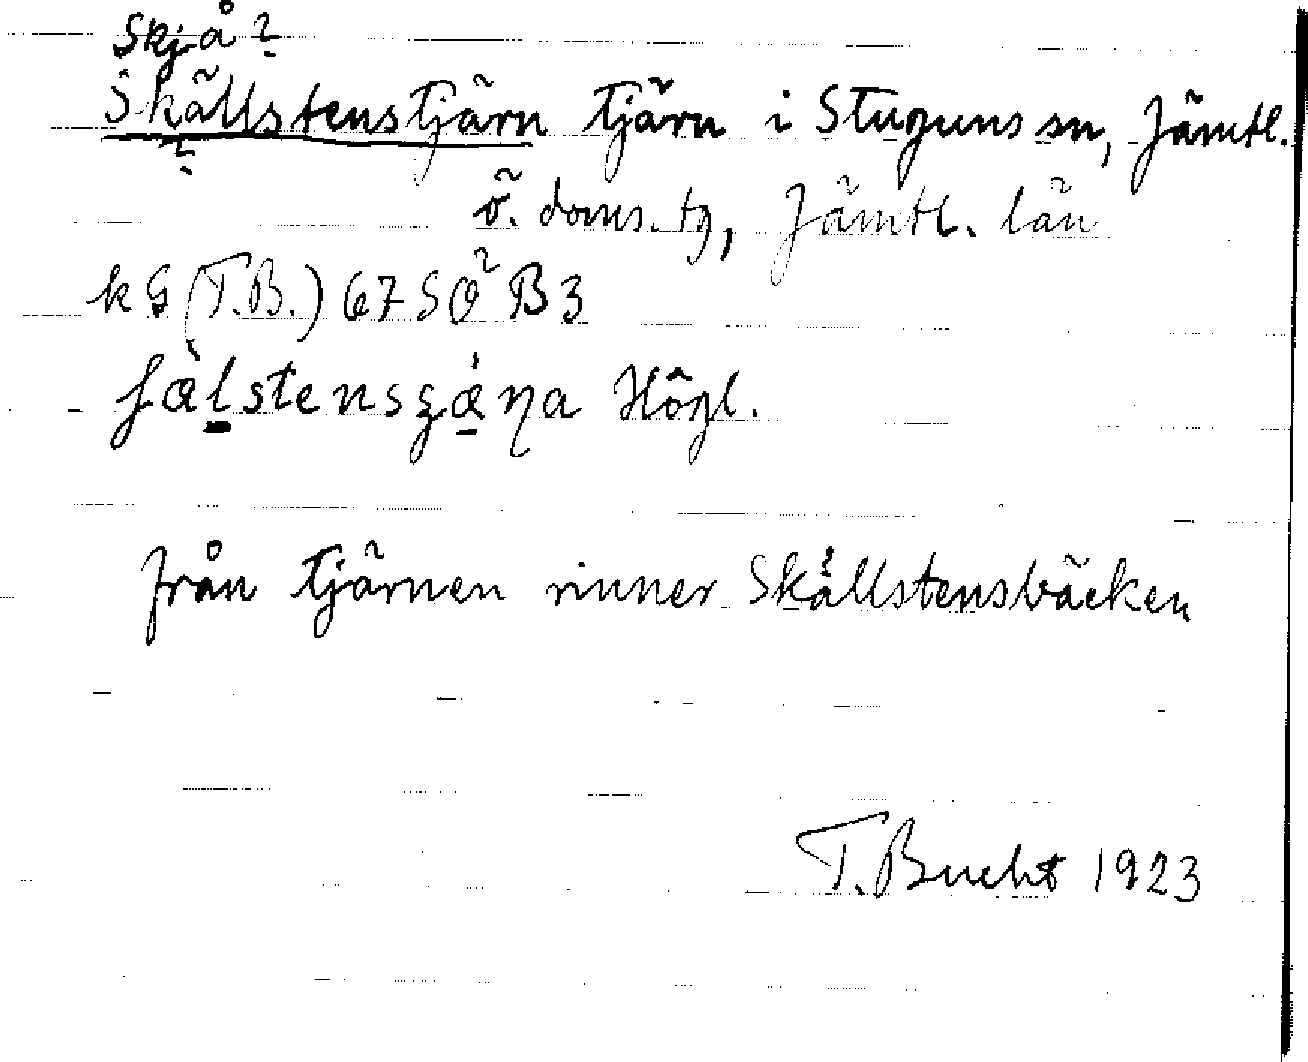 Skjå?
Skällstenstjärn tjärn i Stuguns sn, Jämtl.
ö. doms. tg, Jämtl. län
kG (T.B.) 67 SÖ B3
Högl.
från tjärnen rinner Skällstensbäcken
T. Bucht 1923